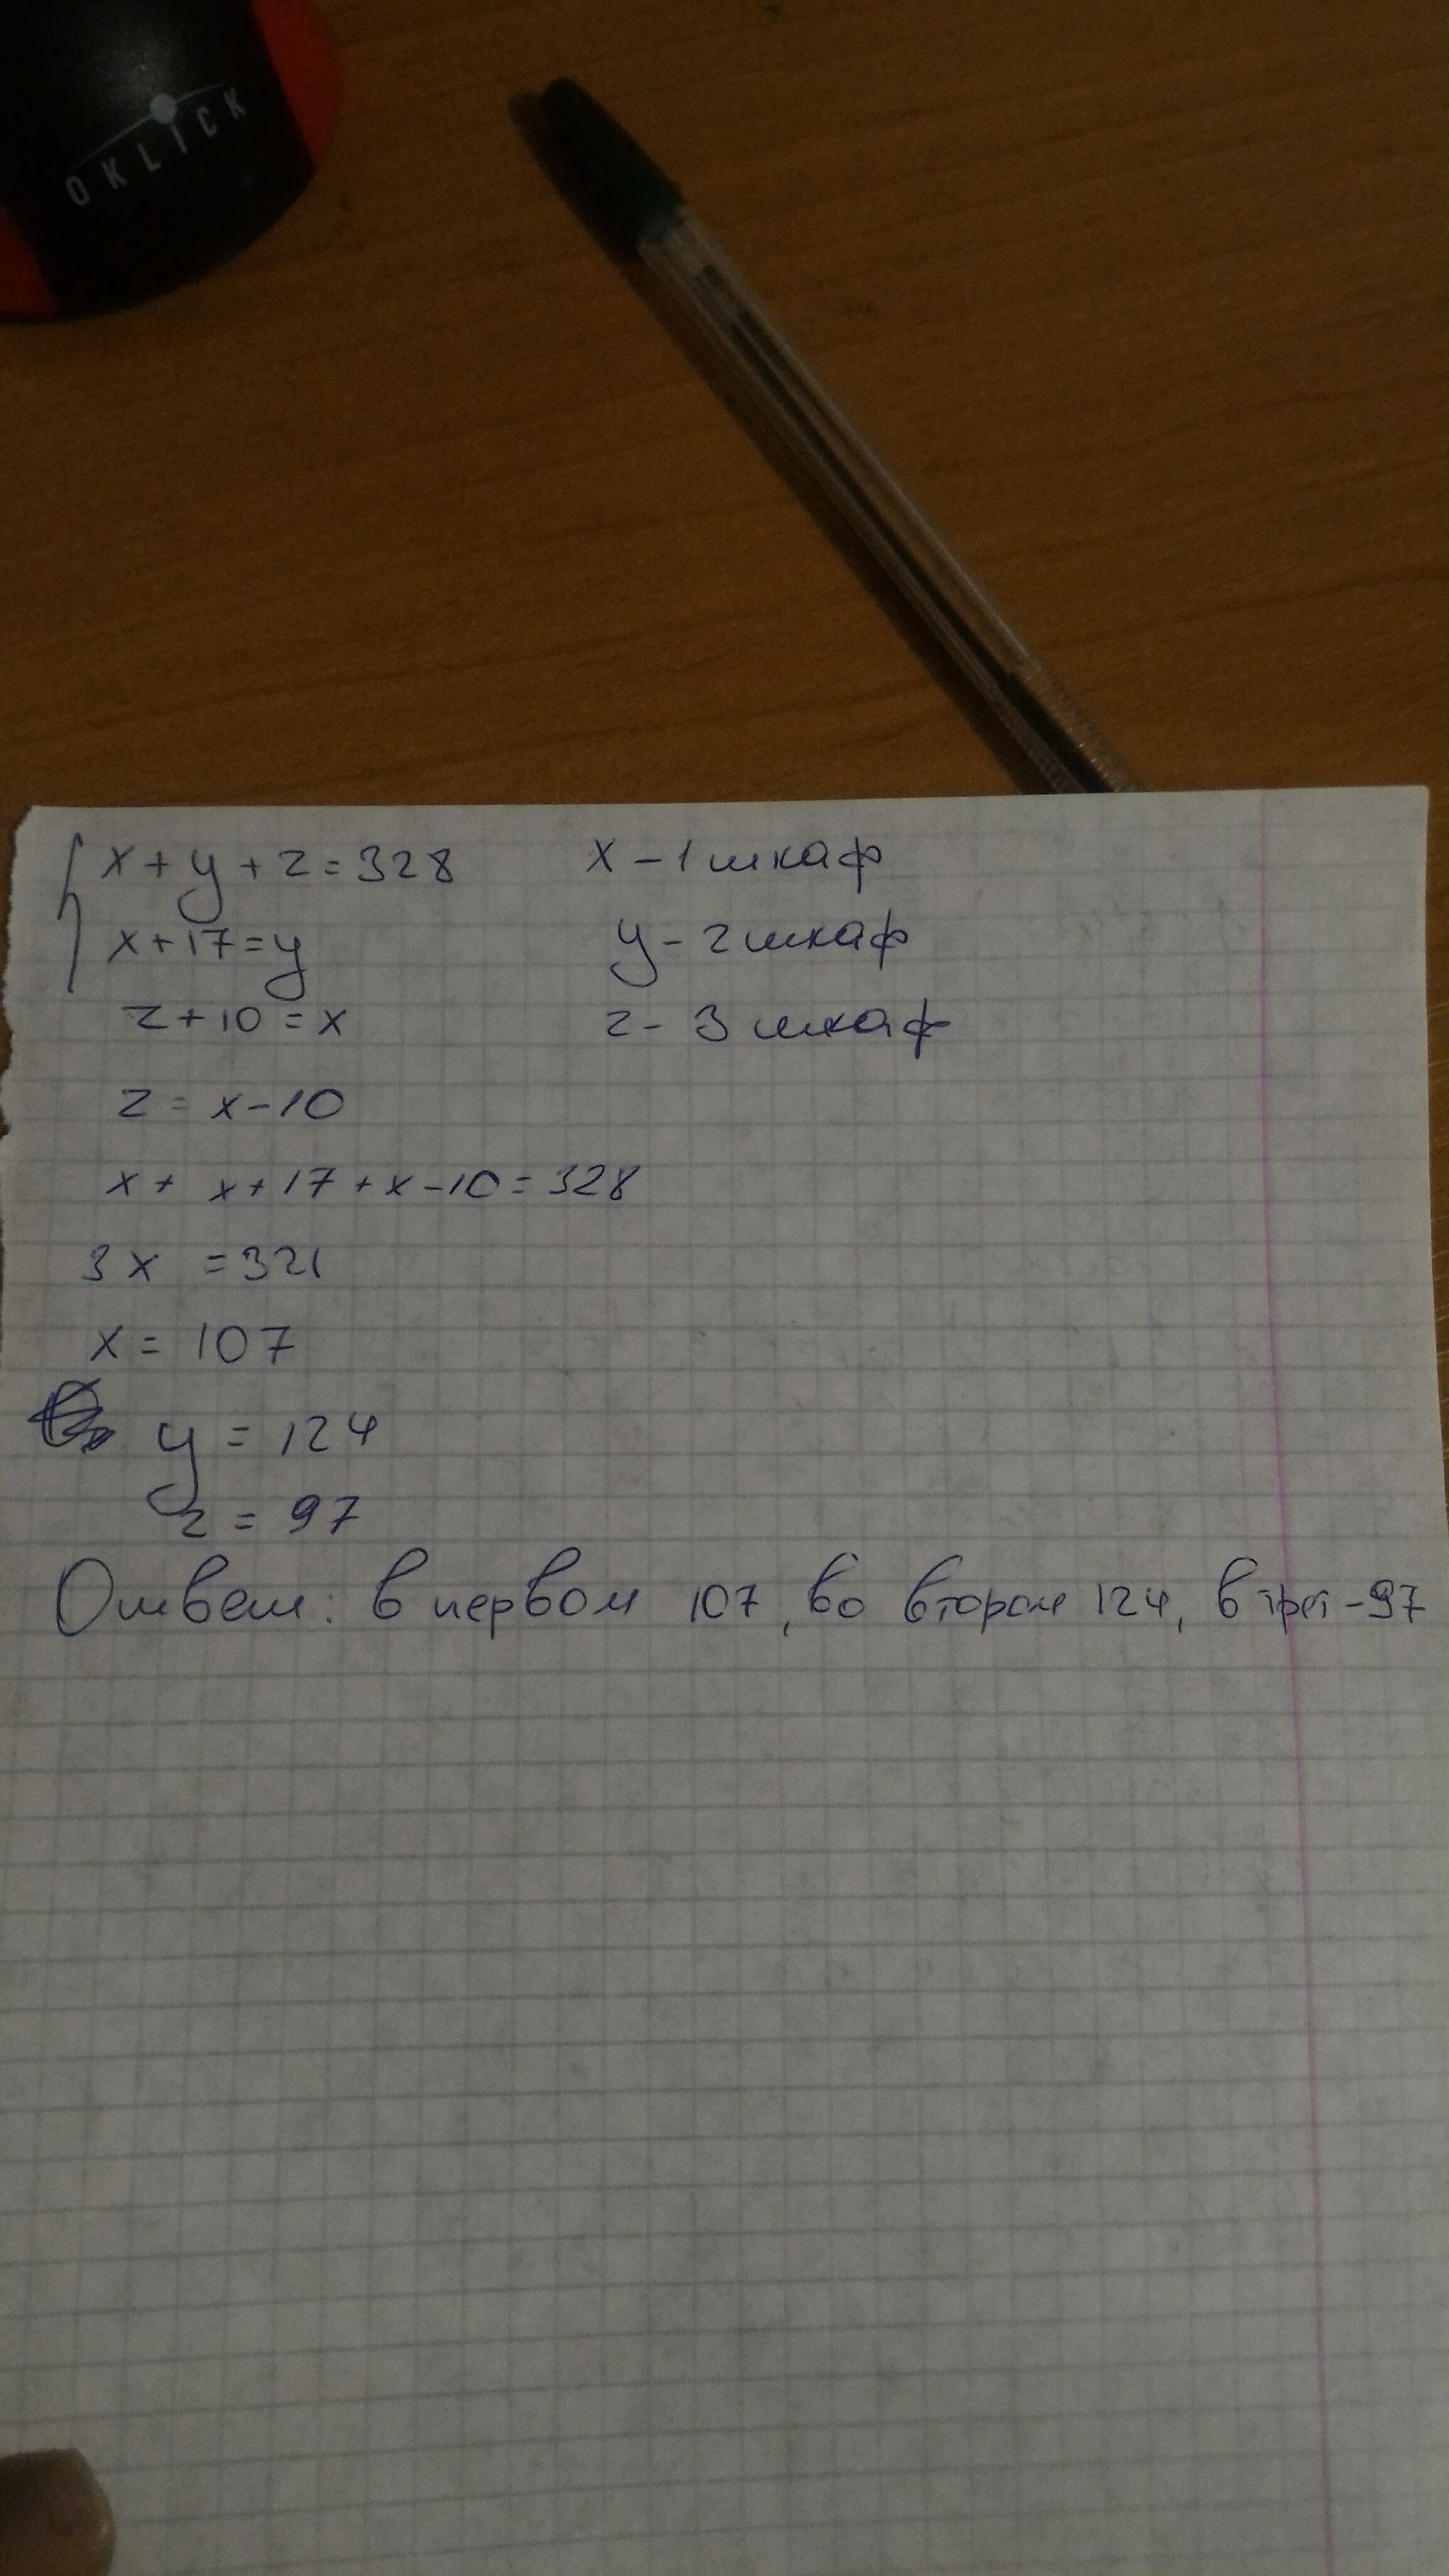 OKLICK
x + y + z = 328
x - 1 шкаф
x + 17 = y
y - 2 шкаф
z + 10 = x
z - 3 шкаф
z = x - 10
x + x + 17 + x - 10 = 328
3x = 321
x = 107
y = 124
z = 97
Ответ: в первом 107, во втором 124, в трет - 97